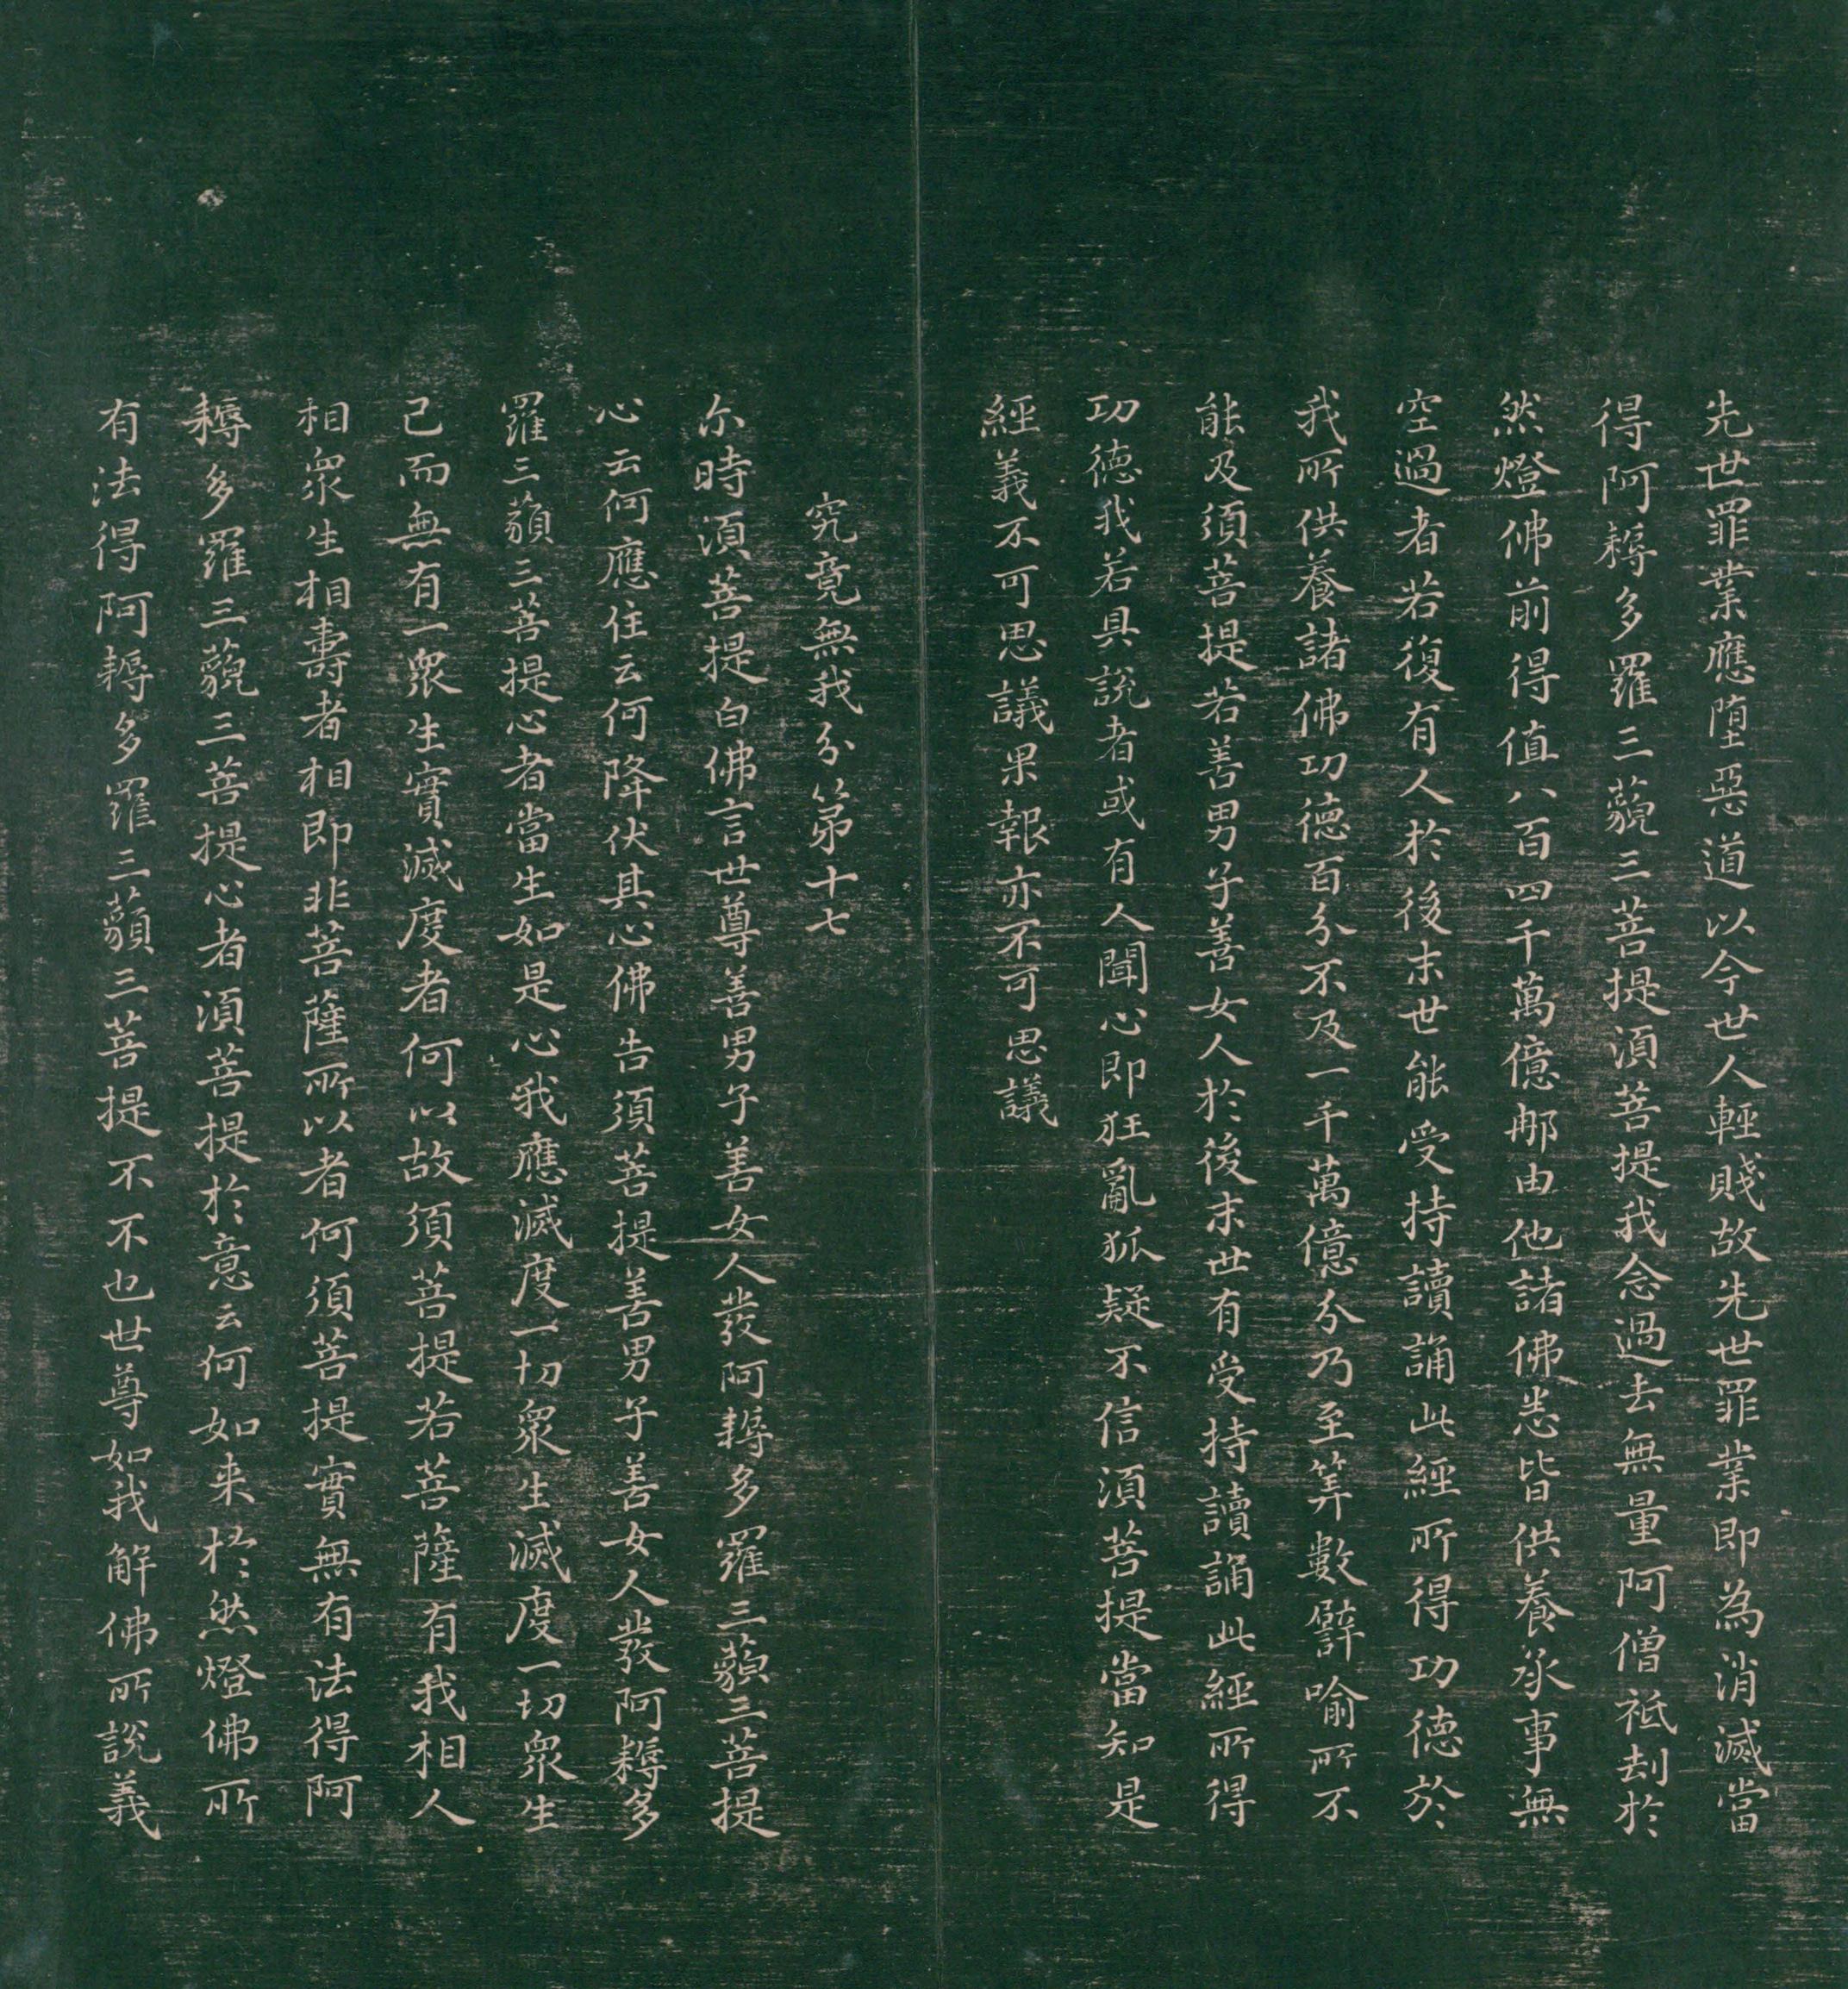 先世罪業應堕惡道以今世人輕賤故先世罪業即為消滅當
得阿耨多羅三藐三菩提湏菩提我念過去無量阿僧祇刦於
然燈佛前得值八百四千萬億那由他諸佛悉皆供養承事無
空過者若復有人於後末世能受持讀誦此經所得功德於
我所供養諸佛功德百分不及一千萬億分乃至筭數譬喻所不
能及須菩提若善男子善女人於後末世有受持讀誦此經所得
功德我若具說者或有人聞心即狂亂狐疑不信湏菩提當知是
經義不可思議果報亦不可思議
究竟無我分第十七
尔時湏菩提白佛言世尊善男子善女人發阿耨多羅三藐三菩提
心云何應住云何降伏其心佛告須菩提善男子善女人發阿耨多
羅三藐三菩提心者當生如是心我應滅度一切眾生滅度一切眾生
已而無有一眾生實滅度者何以故須菩提若菩薩有我相人
相眾生相壽者相即非菩薩所以者何須菩提實無有法得阿
耨多羅三藐三菩提心者湏菩提於意云何如来於然燈佛所
有法得阿耨多羅三藐三菩提不不也世尊如我解佛所說義